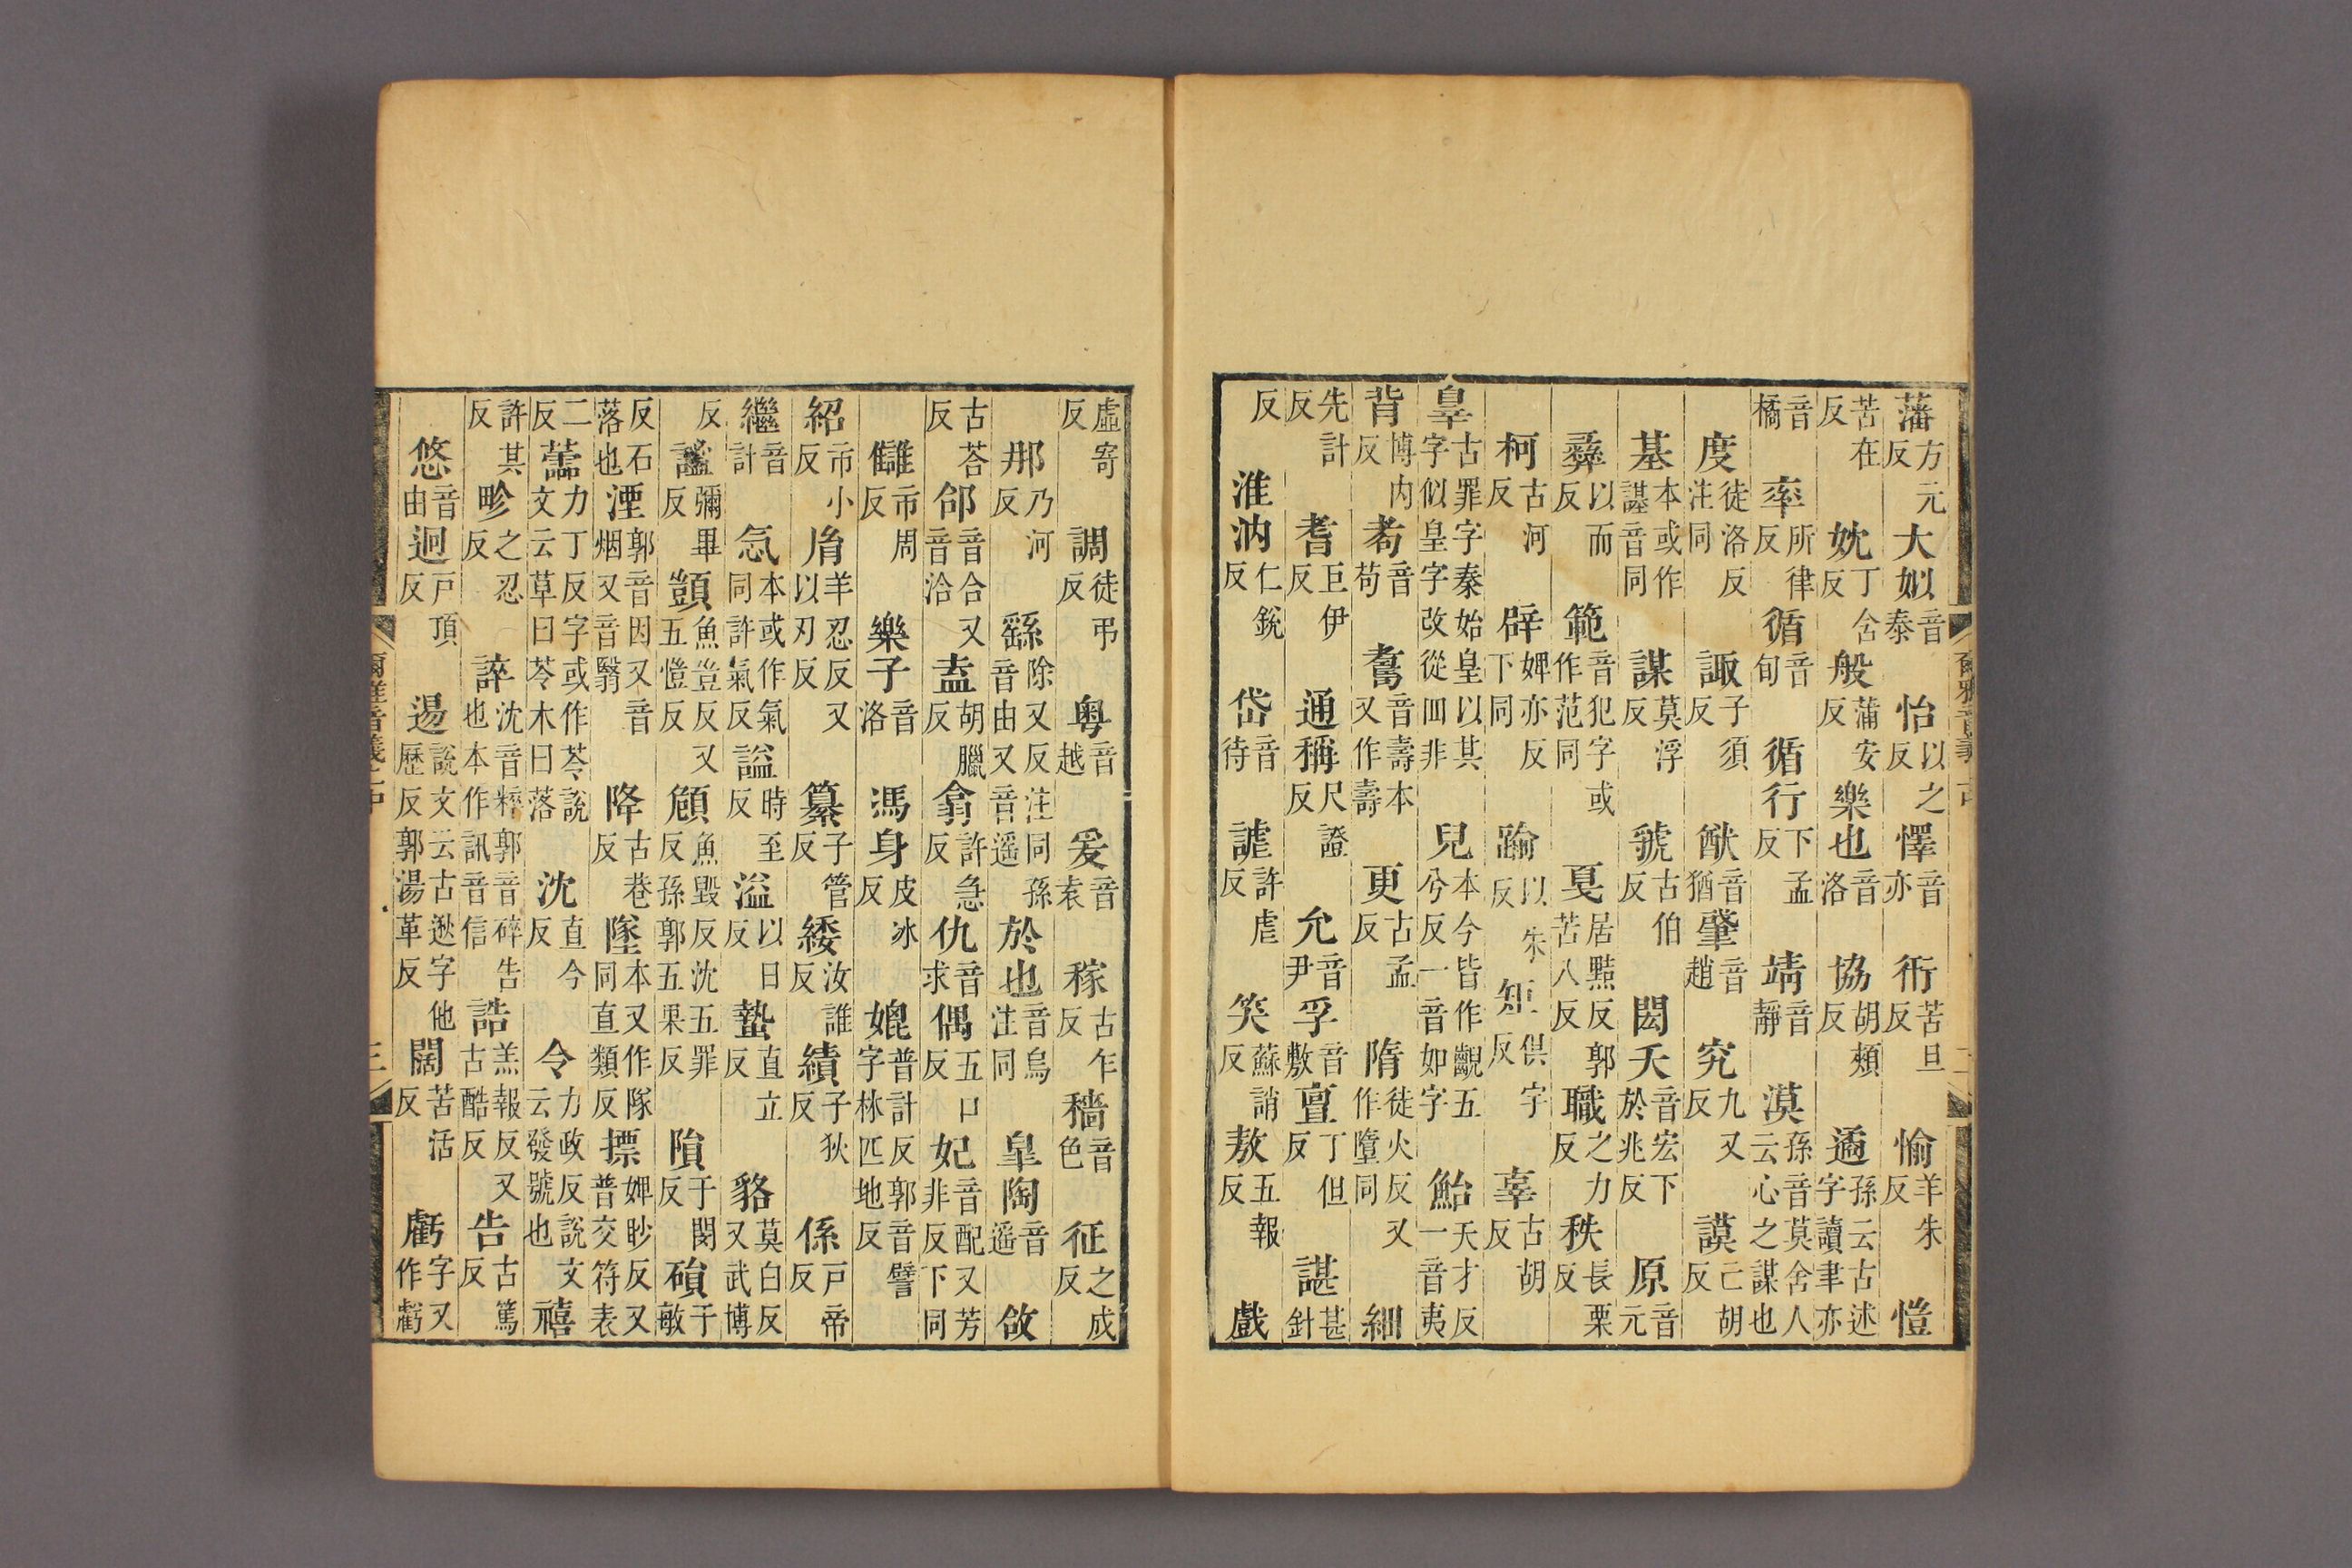 藩方元反大姒音泰怡以之反懌音亦衎苦旦反愉羊朱反愷
苦在反妉丁含反般蒲安反樂也音洛協胡頰反遹孫云古述字讀聿亦
音橘率所律反循音旬循行下孟反靖音靜漠孫音莫舍人云心之謀也
度徒洛反注同諏子須反猷音猶肇音趙究九又反謨亡胡反
基本或作諅音同謀莫浮反虢古伯反閎夭音宏下於兆反原音元
彝以而反範音犯字或作范同戛居黠反郭苦八反職之力反秩長栗反
柯古河反辟婢亦反下同踰以朱反矩俱字反辜古胡反
辠古罪字秦始皇以其字似皇字改從罒非兒本今皆作齯五兮反一音如字鮐天才反一音夷
背博内反耇音苟音壽本又作壽更古孟反隋徒火反又作墮同細
先計反耆巨伊反通稱尺證反允音尹孚音敷亶丁但反諶甚針
反淮汭仁銳反岱音待謔許虐反笑蘇誚反敖五報反戲
爾雅音義上中 二
虛寄反調徒弔反粵音越爰音袁稼古乍反穡音色征之成反
那乃河反繇除又反注同孫音由又音遥於也音烏注同皐陶音遥敆
古荅反郃音合又音洽盍胡臘反翕許急反仇音求偶五口反妃音配又芳非反下同
讎市周反樂子音洛馮身皮冰反媲普計反郭音譬字林匹地反
紹市小反胤羊忍反又以刃反纂子管反緌汝誰反績子狄反係戶帝反
繼音計忥本或作氣同許氣反謚時至反溢以日反蟄直立反貉莫白反又武博
反謐彌畢反顗魚豈反又五愷反頠魚毀反沈五罪反孫郭五果反隕于閔反磒于敏
反石落也湮郭音因又音烟又音翳降古巷反墜本又作隊同直類反摽婢眇反又普交符表
二反蘦力丁反字或作苓說文云草曰苓木曰落沈直今反令力政反說文云發號也禧
許其反畛之忍反誶沈音粹郭音碎告也本作訊音信誥羔報反又古酷反告古篤反
悠音由迥戶頂反逷說文云古逖字他歷反郭湯革反闊苦活反虧字又作虧
爾雅音義上中 三